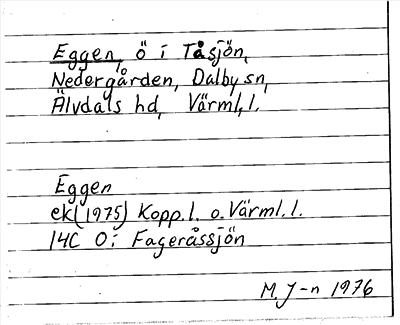 Eggen, ö i Tåsjön,
Nedergården, Dalby sn,
Älvdals hd, Värml. l.
Eggen
ek (1975) Kopp. l. o. Värml. l.
14C 0i Fageråssjön
M. J-n 1976